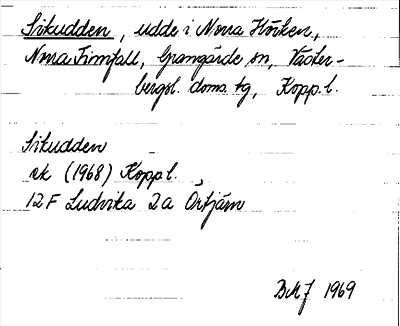 Sikudden, udde i Norra Hörken,
Norra Finnfall, Grangärde sn, Väster-
bergsl. doms. tg, Kopp. l.
Sikudden
ek (1968) Kopp l.,
12 F Ludvika 2 a Örtjärn
1969